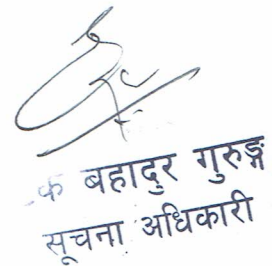 बहादुर गुरुङ्ग
सूचना अधिकारी